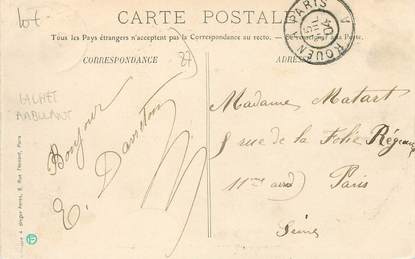 lot
CARTE POSTALE
Tous les Pays étrangers n'acceptent pas la Correspondance au recto. — Se renseigner à la Poste.
CORRESPONDANCE
27
ADRESSE
PARIS A ROUEN
CACHET
AMBULANT
Bonjour
E.
Madame Matart
8 rue de la Folie Régnault
11me arrd Paris
Seine
Paris